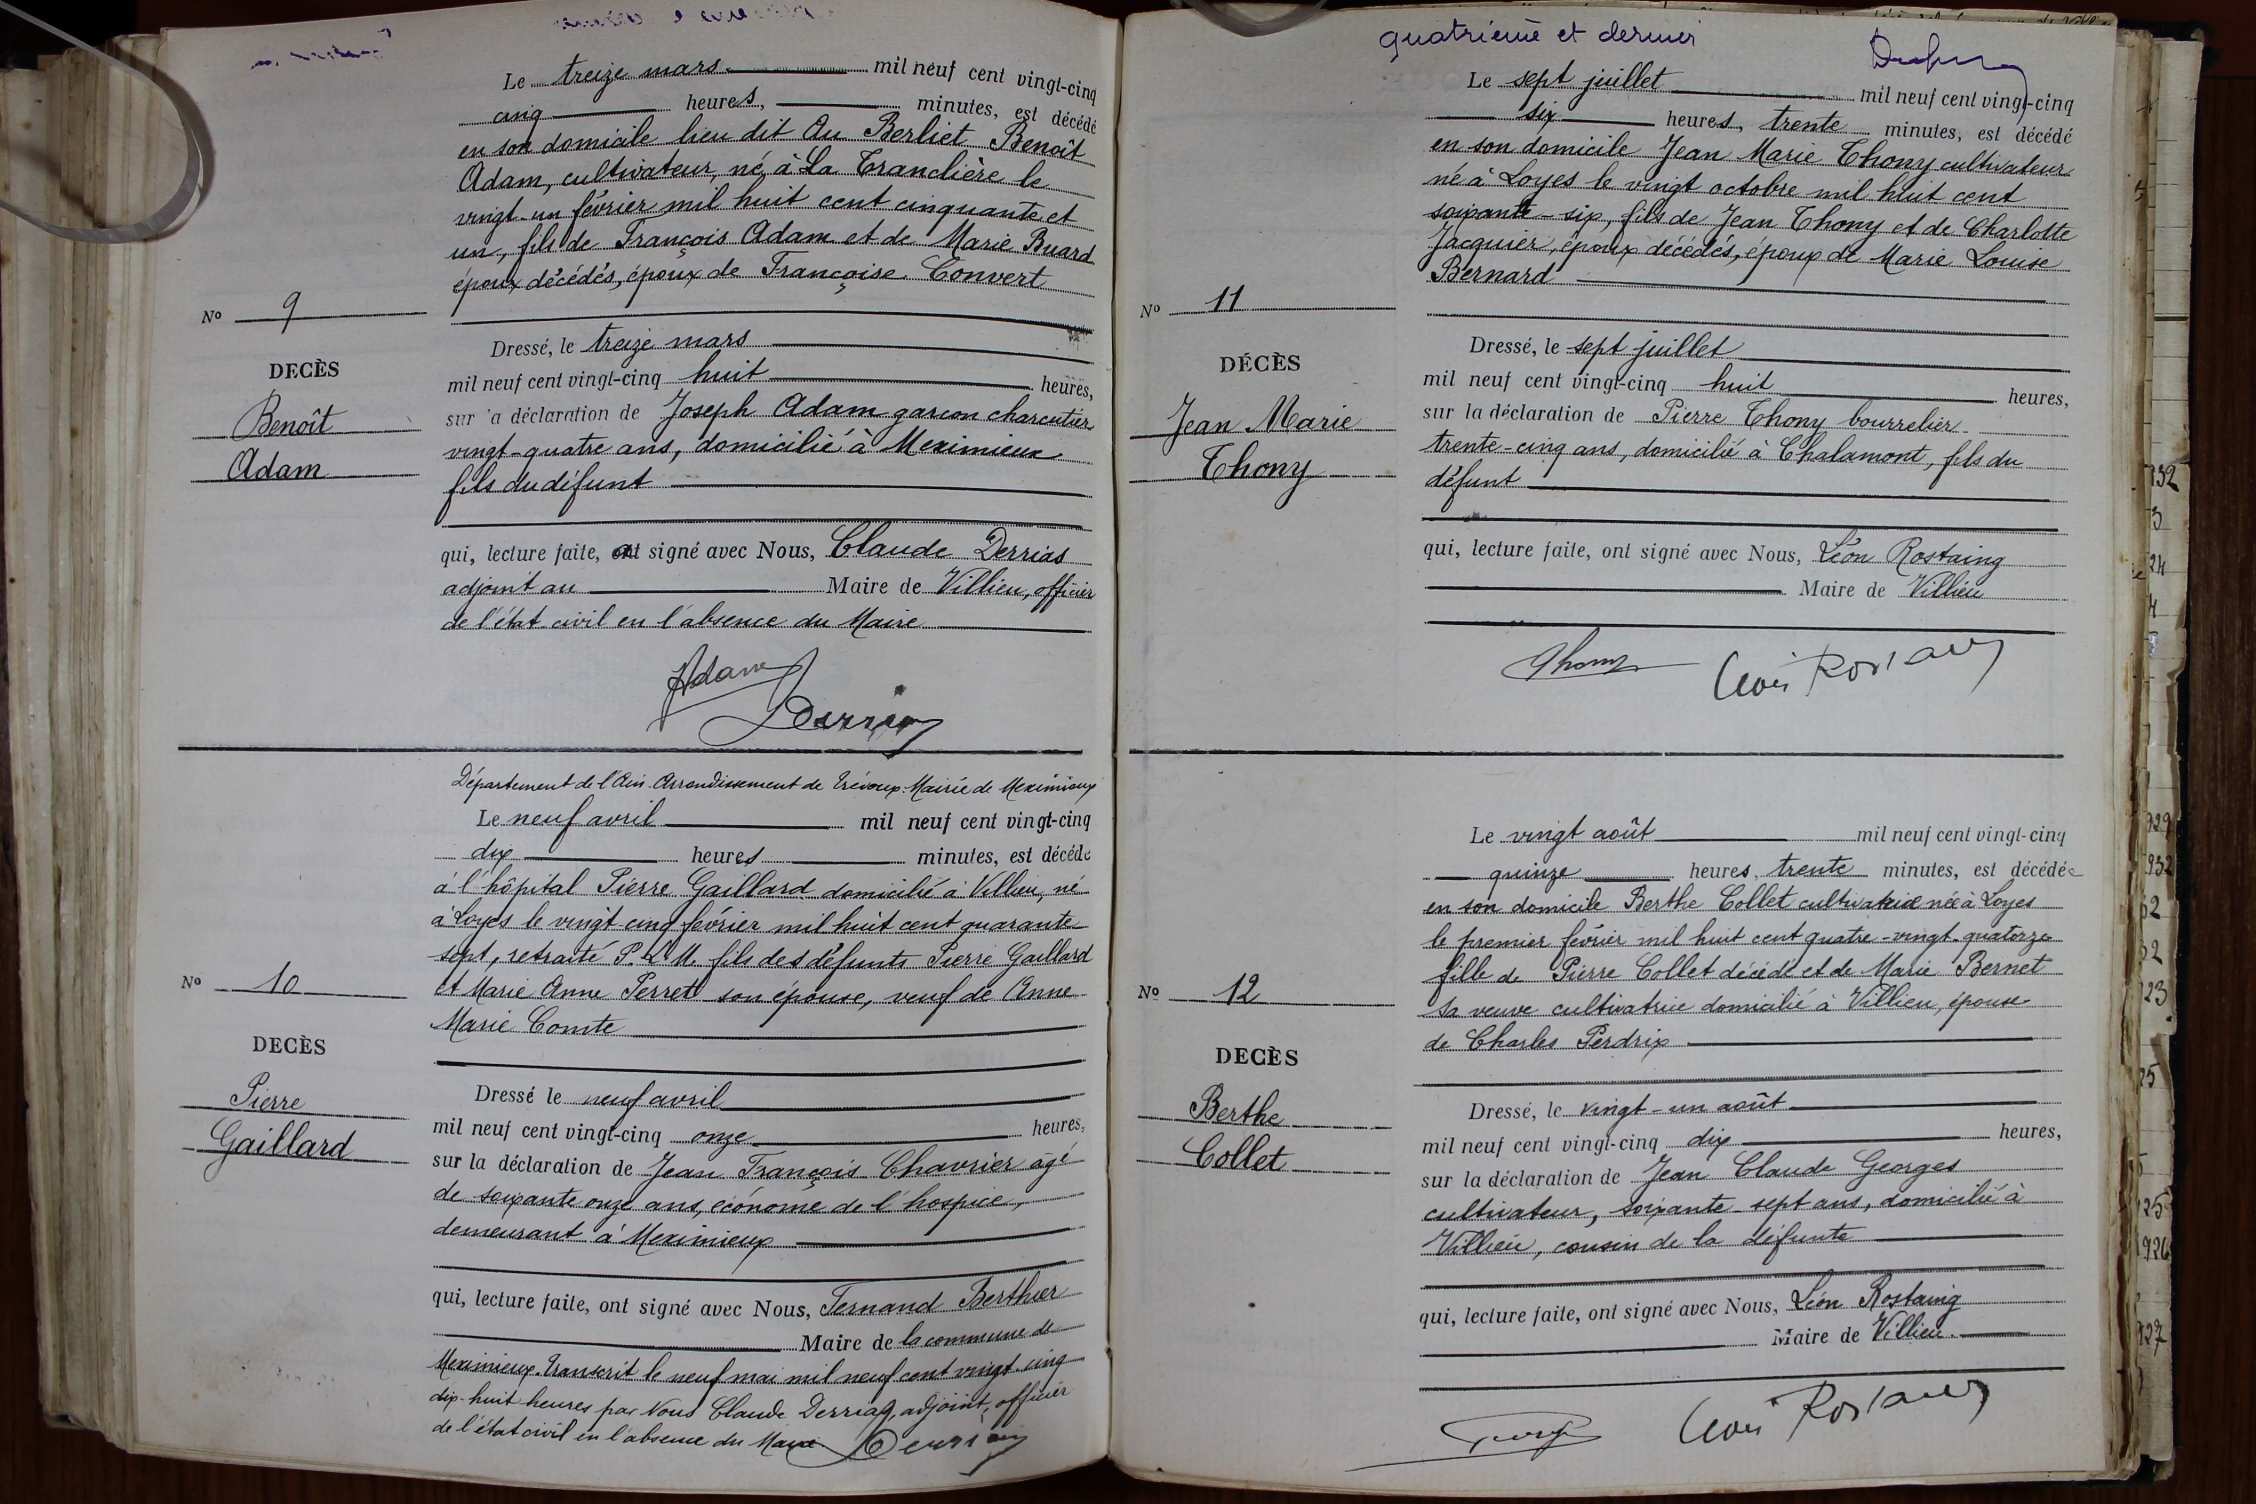 Le treize mars mil neuf cent vingt-cinq
cinq heures, minutes, est décédé
en son domicile lieu dit Au Berliet Benoît
Adam, cultivateur, né à La Tranclière le
vingt-un février mil huit cent cinquante et
un, fils de François Adam et de Marie Buard
époux décédés, époux de Françoise Convert
No 9
DECÈS
Benoît
Adam
Dressé, le treize mars
mil neuf cent vingt-cinq huit heures,
sur la déclaration de Joseph Adam garçon charcutier
vingt-quatre ans, domicilié à Meximieux
fils du défunt
qui, lecture faite, ont signé avec Nous, Claude Derrias
adjoint au Maire de Villieu, officier
de l'état civil en l'absence du Maire
Adam
Derrias
Département de l'Ain. Arrondissement de Trévoux. Mairie de Meximieux
Le neuf avril mil neuf cent vingt-cinq
dix heures minutes, est décédé
à l'hôpital Pierre Gaillard domicilié à Villieu, né
à Loyes le vingt cinq février mil huit cent quarante
sept, retraité P.L.M. fils des défunts Pierre Gaillard
et Marie Anne Perret son épouse, veuf de Anne
Marie Comte
No 10
DECÈS
Pierre
Gaillard
Dressé le neuf avril
mil neuf cent vingt-cinq onze heures,
sur la déclaration de Jean François Chavrier agé
de soixante onze ans, économe de l'hospice,
demeurant à Meximieux
qui, lecture faite, ont signé avec Nous, Fernand Berthier
Maire de la commune de
Meximieux. Transcrit le neuf mai mil neuf cent vingt-cinq
dix-huit heures par Nous Claude Derrias, adjoint, officier
de l'état civil en l'absence du Maire Derrias
quatrième et dernier
Le sept juillet mil neuf cent vingt-cinq
six heures, trente minutes, est décédé
en son domicile Jean Marie Thony cultivateur
né à Loyes le vingt octobre mil huit cent
soixante-six, fils de Jean Thony et de Charlotte
Jacquier, époux décédés, époux de Marie Louise
Bernard
No 11
DÉCÈS
Jean Marie
Thony
Dressé, le sept juillet
mil neuf cent vingt-cinq huit heures,
sur la déclaration de Pierre Thony bourrelier
trente-cinq ans, domicilié à Chalamont, fils du
défunt
qui, lecture faite, ont signé avec Nous, Léon Rostaing
Maire de Villieu
Thony Léon Rostaing
Le vingt août mil neuf cent vingt-cinq
quinze heures, trente minutes, est décédée
en son domicile Berthe Collet cultivatrice née à Loyes
le premier février mil huit cent quatre-vingt-quatorze
fille de Pierre Collet décédé et de Marie Bernet
sa veuve cultivatrice domicilié à Villieu, épouse
de Charles Perdrix
No 12
DECÈS
Berthe
Collet
Dressé, le vingt-un août
mil neuf cent vingt-cinq dix heures,
sur la déclaration de Jean Claude Georges
cultivateur, soixante-sept ans, domicilié à
Villieu, cousin de la défunte
qui, lecture faite, ont signé avec Nous, Léon Rostaing
Maire de Villieu
Léon Rostaing